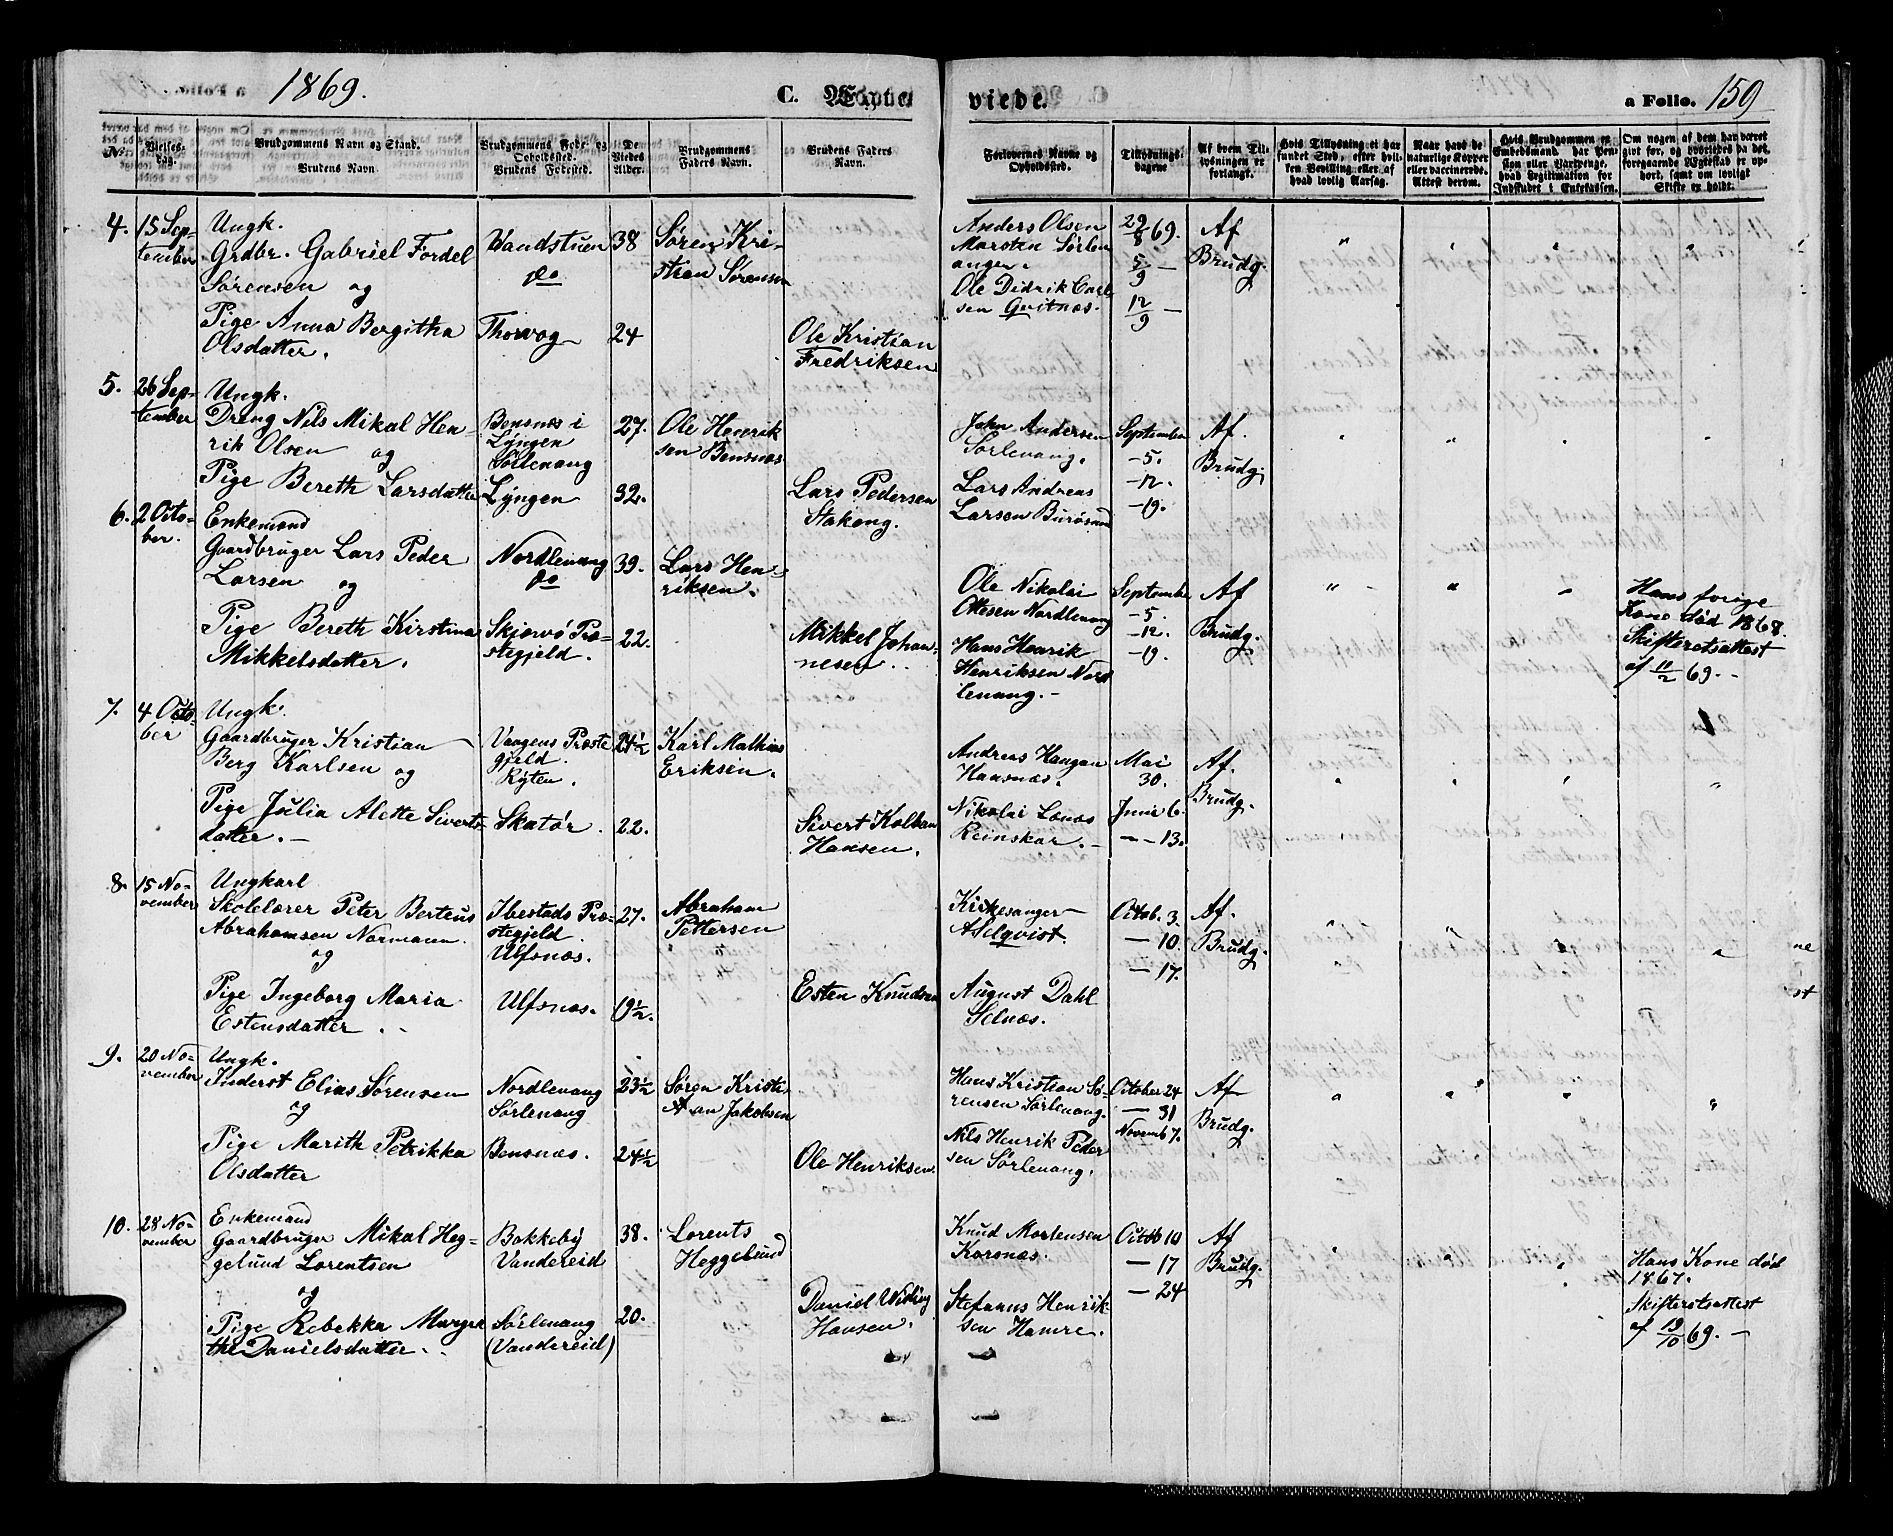 1869.
C. Egte
viede.
a Folio. 159
No.
Vielses-
dag.
Brudgommens Navn og Stand.
Brudens Navn.
Brudgommens Føde- og
Opholdssted.
Brudens Fødested.
De
Viedes
Alder.
Brudgommens
Faders Navn.
Brudens Faders
Navn.
Forlovernes Navne og
Opholdssted.
Tillysnings-
dagene
Af hvem Til-
lysningen er
forlangt.
Hvis Tillysning ei har
fundet Sted, efter hvil-
ken Bevilling eller af
hvad lovlig Aarsag.
Naar havt de
naturlige Kopper
eller vaccinerede.
Attest derom.
Hvis Brudgommen er
Embedsmand, har Pen-
sion eller Vartpenge,
hvad Legitimation for
Indskudet i Enkekassen.
Om nogen af dem har været
gift før, og hvorledes da det
foregaaende Egteskab er op-
hørt, samt om lovligt
Skifte er holdt.
4. 15 Sep-
tember
Ungk.
Grdbr. Gabriel Fordel
Sørensen og
Pige Anna Bergitha
Olsdatter.
Vandstuen
do
Thorvog
38
24
Søren Kri-
stian Sørensen
Ole Kristian
Fredriksen
Anders Olsen
Marsten Sørlen-
angen.
Ole Didrik Carl-
sen Gvitnæs.
29/8 69.
5/9 —
12/9 —
Af
Brudg.
5. 26 Sep-
tember
Ungk.
Dreng Nils Mikal Hen-
rik Olsen og
Pige Bereth Larsdatter
Bensnes i
Lyngen
Sørlenang
Lyngen
27.
32.
Ole Henrik
sen Bensnæs
Lars Pedersen
Stakeng.
John Andersen
Sørlenang.
Lars Andreas
Larsen Burøsund
September
- 5.
- 12.
- 19.
Af.
Brudg.
6. 2 Octo-
ber.
Enkemand
Gaardbruger Lars Peder
Larsen og
Pige Bereth Kirstina
Mikkelsdatter.
Nordlenang
do
Skjervø Præ-
stegjeld.
39.
22.
Lars Hen-
riksen.
Mikkel Johan-
nesen.
Ole Nikolai
Ottesen Nordlenang
Hans Henrik
Henriksen Nord
lenang. -
September
- 5.
- 12.
- 19.
Af
Brudg.
Hans forige
Kone død 1868.
Skifteretsattest
af 11/2 69. -
7. 4 Octo-
ber
Ungk.
Gaardbruger Kristian
Berg Karlsen og
Pige Julia Alette Siverts-
datter. -
Vaagens Præste
gjeld.
Ryten.
Skatør.
24½
22.
Karl Mathias
Eriksen.
Sivert Kolban
Hansen.
Andreas Haugan
Hansnæs.
Nikolai Lønæs
Reinskar. -
Mai
30.
Juni 6.
— 13.
Af.
Brudg.
8. 15 No-
vember
Ungkarl
Skolelærer Peter Berteus
Abrahamsen Normann.
og
Pige Ingeborg Maria
Estensdatter.
Ibestads Præ-
stegjeld.
Ulfsnæs.
Ulfsnæs.
27.
19½.
Abraham
Pettersen
Esten Knudsen
Kirkesanger
A Selqvist.
August Dahl
Selnæs.
Octob. 3.
— 10.
— 17.
Af.
Brudg.
9. 20 No-
vember
Ungk.
Inderst Elias Sørensen
og
Pige Marith Petrikka
Olsdatter
Nordlenang
Sørlenang
Bensnæs.
23½
24½
Søren Kristi-
an Jakobsen
Ole Henriksen
Hans Kristian Sø-
rensen Sørlenang.
Nils Henrik Peder
sen Sørlenang.
October 24
— 31
Novemb 7.
Af
Brudg.
10. 28 No-
vember
Enkemand
Gaardbruger Mikal Heg-
gelund Lorentsen
og
Pige Rebekka Margre
the Danielsdatter.
Bakkeby
Vandereid
Sørlenang
(Vandereid)
38.
20.
Lorents
Heggelund
Daniel Wiking
Hansen.
Knud Mortensen
Korsnæs.
Stefanus Henrik-
sen Hamre.
Octob 10
— 17
— 24
Af
Brudg.
Hans Kone død
1867.
Skifteretsattest
af 19/10 69. —